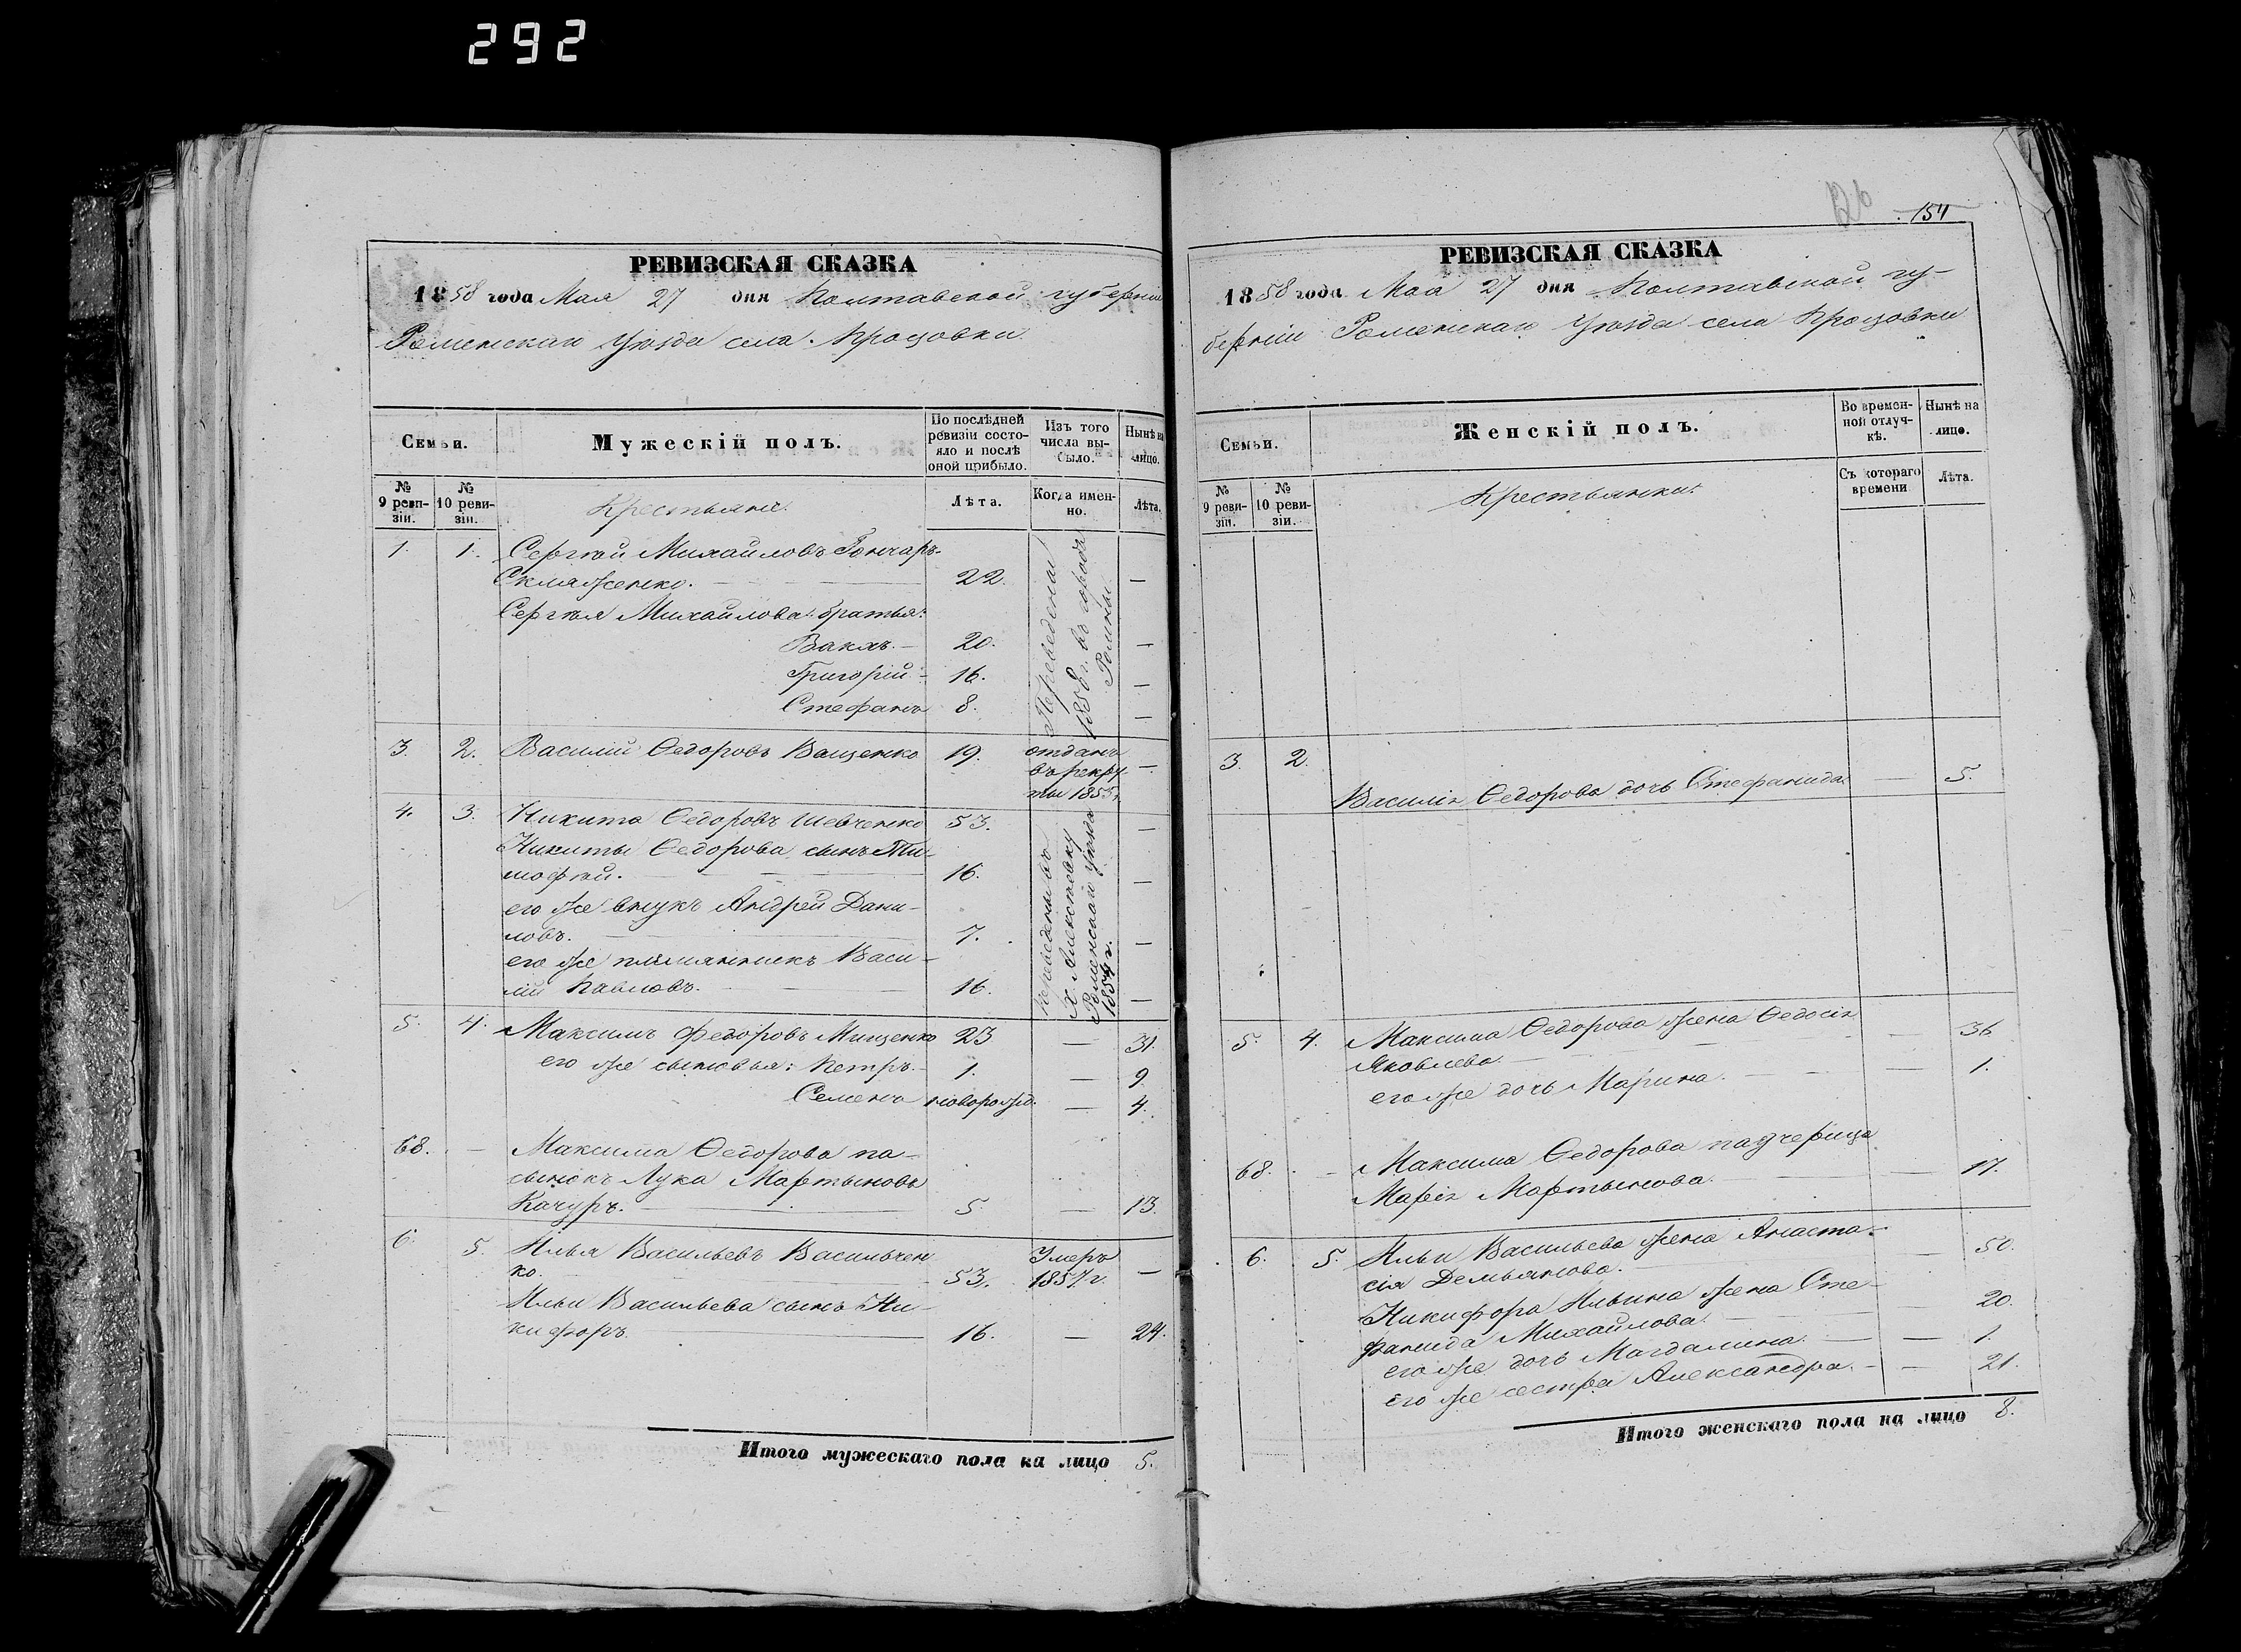 292
РЕВИЗСКАЯ СКАЗКА
1858 года Мая 27 дня Полтавской губерніи
Роменскаго Уѣзда села Процовки
Семьи.
Мужескій полъ.
По послѣдней ревизіи состояло и послѣ оной прибыло.
Изъ того числа выбыло.
Нынѣ на лицо.
№ 9 ревизіи.
№ 10 ревизіи.
Крестьяне.
Лѣта.
Когда именно.
Лѣта.
1. 1. Сергѣй Михайловъ Гончаръ-
Скляженко. 22. —
Сергѣя Михайлова братья:
Вакхъ. 20. —
Григорій 16. —
Стефанъ 8. —
Переведены
1858 г. въ городъ
Ромны.
3. 2. Василій Ѳедоровъ Ващенко 19. отданъ
въ рекру- —
ты 1853 г.
4. 3. Никита Ѳедоровъ Шевченко 53. —
Никиты Ѳедорова сынъ Ти-
мофѣй. 16. —
его же внукъ Андрей Дани-
ловъ. 7. —
его же племянникъ Васи-
лій Павловъ. 16. —
Переведены въ
х. Алексѣевку
Роменскаго Уѣзда
1854 г.
5. 4. Максимъ Федоровъ Мищенко 23 — 31.
его же сыновья: Петръ. 1. — 9
Семенъ новорожд. — 4.
68. — Максима Ѳедорова па-
сынокъ Лука Мартыновъ
Качуръ. 5. — 13.
6. 5. Илья Васильевъ Васильчен
ко. 53. Умеръ 1857 г. —
Ильи Васильева сынъ Ни-
кифоръ 16. — 24.
Итого мужескаго пола на лицо 5.
154
РЕВИЗСКАЯ СКАЗКА
1858 года Мая 27 дня Полтавской гу-
берніи Роменскаго Уѣзда села Процовки
Семьи.
Женскій полъ.
Во временной отлучкѣ.
Нынѣ на лице.
№ 9 ревизіи.
№ 10 ревизіи.
Крестьянки.
Съ котораго времени
Лѣта.
3. 2.
Василія Ѳедорова дочь Стефанида — 5.
5. 4. Максима Ѳедорова жена Ѳедосія
Яковлева. — 36
его же дочь Марина. — 1.
68. — Максима Ѳедорова падчерица
Марія Мартынова. — 17.
6. 5. Ильи Васильева жена Анаста-
сія Демьянова. — 50.
Никифора Ильина жена Сте-
фанида Михайлова. 20.
его же дочь Магдалина. — 1.
его же сестра Александра. — 21.
Итого женскаго пола на лицо 8.